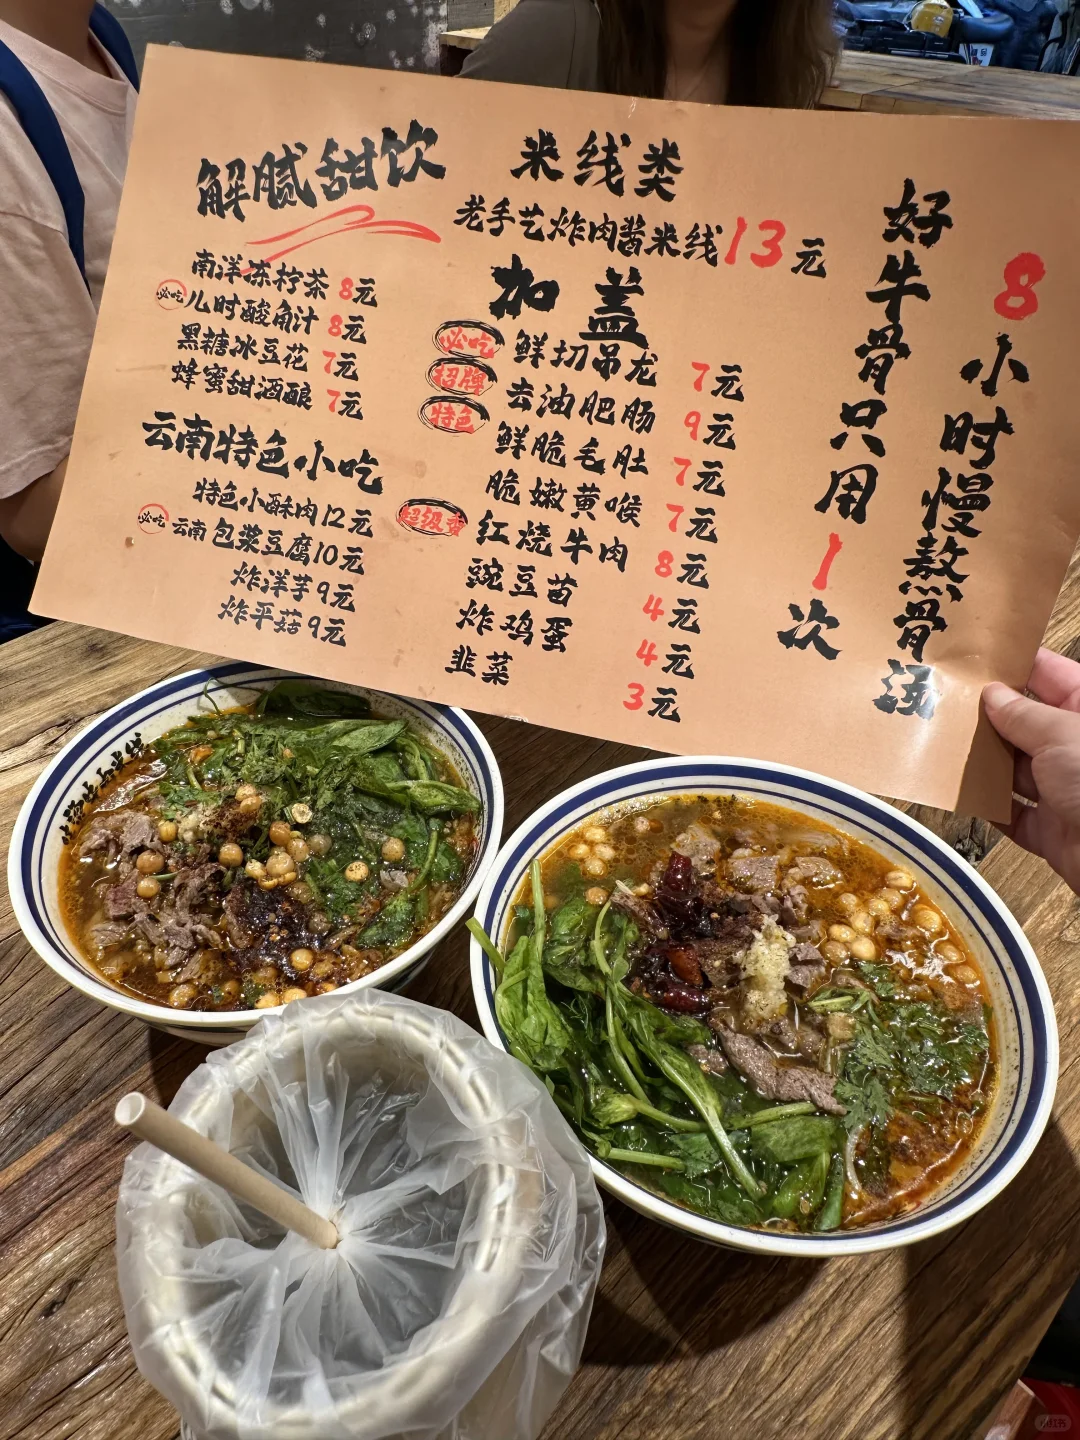 解腻甜饮
南洋冻柠茶 8元
必吃 儿时酸角汁 8元
黑糖冰豆花 7元
蜂蜜甜酒酿 7元
云南特色小吃
特色小酥肉12元
必吃 云南包浆豆腐10元
炸洋芋9元
炸平菇9元
米线类
老手艺炸肉酱米线13元
加盖
必吃 鲜切吊龙 7元
招牌 去油肥肠 9元
特色 鲜脆毛肚 7元
脆嫩黄喉 7元
超级香 红烧牛肉 8元
豌豆苗 4元
炸鸡蛋 4元
韭菜 3元
8小时慢熬骨汤
好牛骨只用1次
小红书